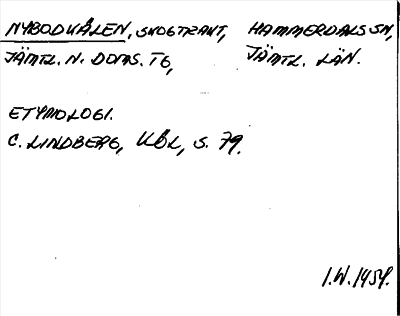 NYBODKÅLEN, SKOGTRAKT, HAMMERDALS SN,
JÄMTL. N. DOMS. TG, JÄMTL. LÄN.
ETYMOLOGI.
C. LINDBERG, KBL, S. 79.
I.W. 1954.